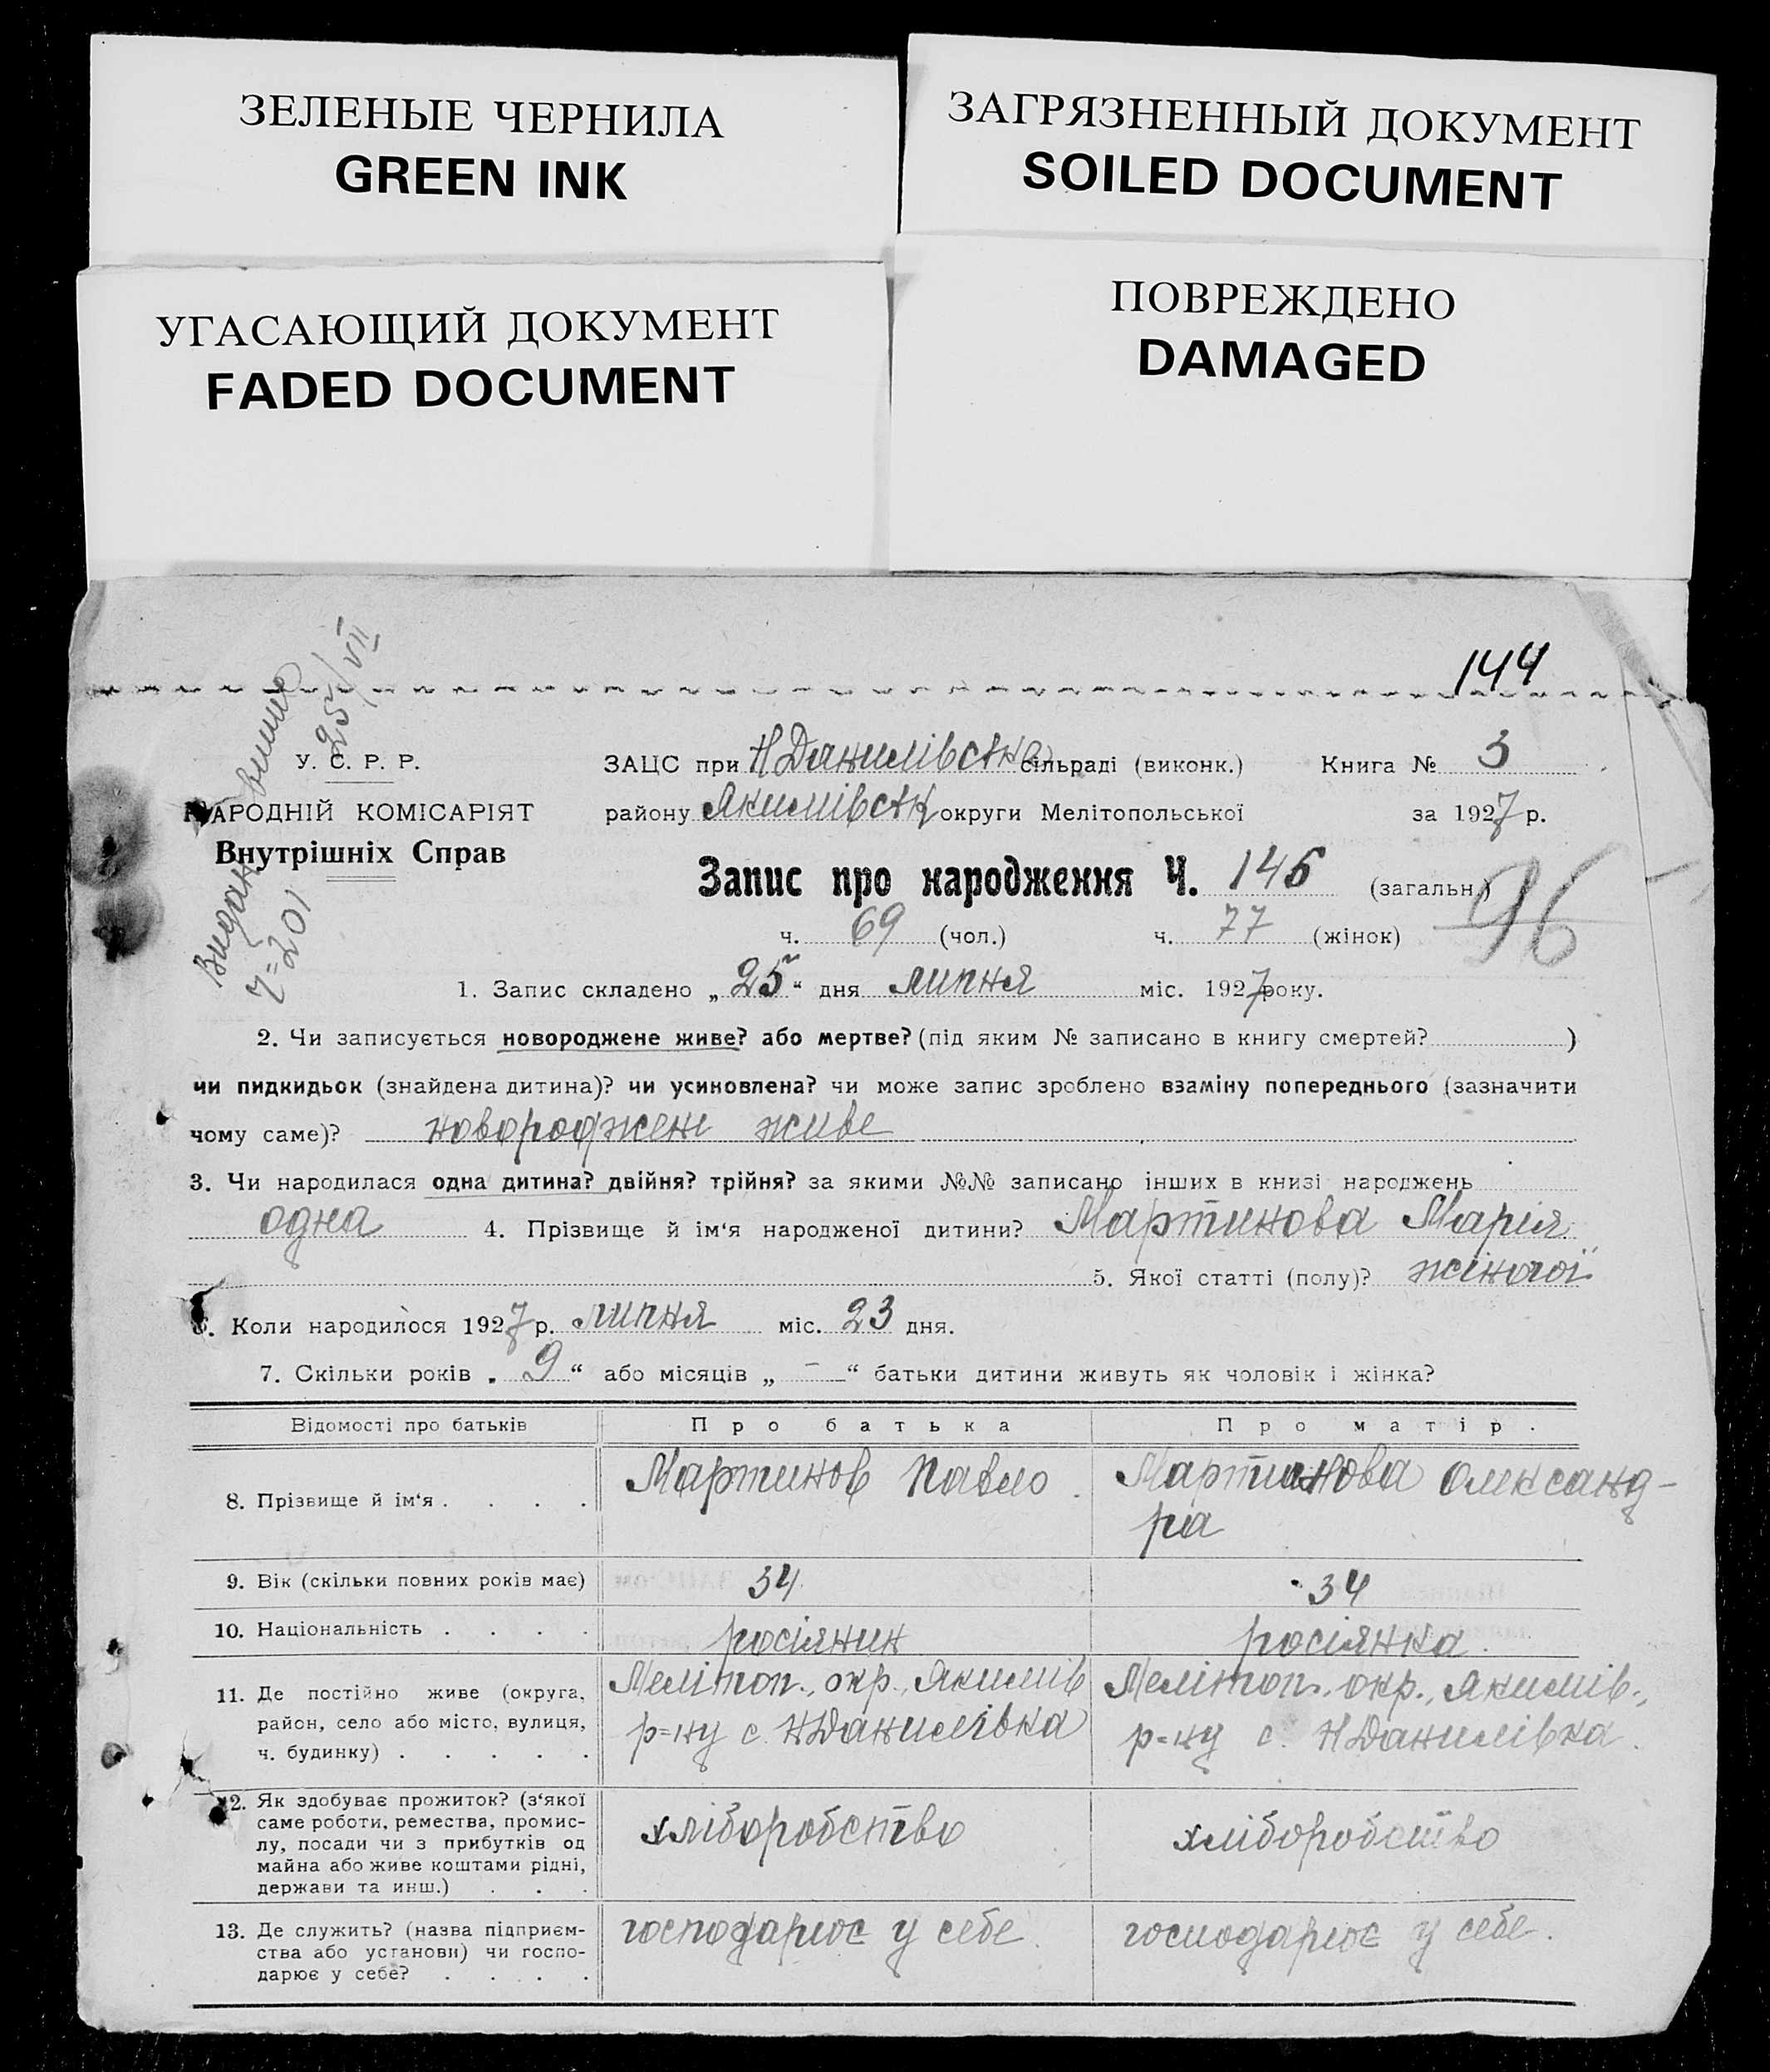 ЗЕЛЕНЫЕ ЧЕРНИЛА
GREEN INK
ЗАГРЯЗНЕННЫЙ ДОКУМЕНТ
SOILED DOCUMENT
УГАСАЮЩИЙ ДОКУМЕНТ
FADED DOCUMENT
ПОВРЕЖДЕНО
DAMAGED
144
Видан
Ч=201
25/VII
У. С. Р. Р.
НАРОДНІЙ КОМІСАРІЯТ
Внутрішніх Справ
ЗАЦС при Н Данилівська сільраді (виконк.) Книга № 3
району Якимівськ округи Мелітопольської за 1927 р.
Запис про народження Ч. 146 (загальн.)
96
ч. 69 (чол.) ч. 77 (жінок)
1. Запис складено „ 25 “ дня липня міс. 1927 року.
2. Чи записується новороджене живе? або мертве? (під яким № записано в книгу смертей? )
чи пидкидьок (знайдена дитина)? чи усиновлена? чи може запис зроблено взаміну попереднього (зазначити
чому саме)? новороджене живе
3. Чи народилася одна дитина? двійня? трійня? за якими №№ записано інших в книзі народжень
одна 4. Прізвище й ім‘я народженої дитини? Мартинова Марія
5. Якої статті (полу)? жіночої
6. Коли народилося 1927 р. липня міс. 23 дня.
7. Скільки років „ 9 “ або місяців „ — “ батьки дитини живуть як чоловік і жінка?
Відомості про батьків Про батька Про матір.
8. Прізвище й ім‘я . . . . Мартинов Павло Мартинова Олександ-
ра
9. Вік (скільки повних років має) 34 34
10. Національність . . . . росіянин росіянка
11. Де постійно живе (округа, Меліт​оп., окр., Якимів Мелітоп., окр., Якимів.,
район, село або місто, вулиця, р=ну с. Н Данилівка р=ну с. Н Данилівка
ч. будинку) . . . . .
12. Як здобуває прожиток? (з‘якої
саме роботи, ремества, промис- хліборобство хліборобство
лу, посади чи з прибутків од
майна або живе коштами рідні,
держави та инш.) . . .
13. Де служить? (назва підприєм- господарює у себе. господарює у себе.
ства або установи) чи госпо-
дарює у себе? . . . .